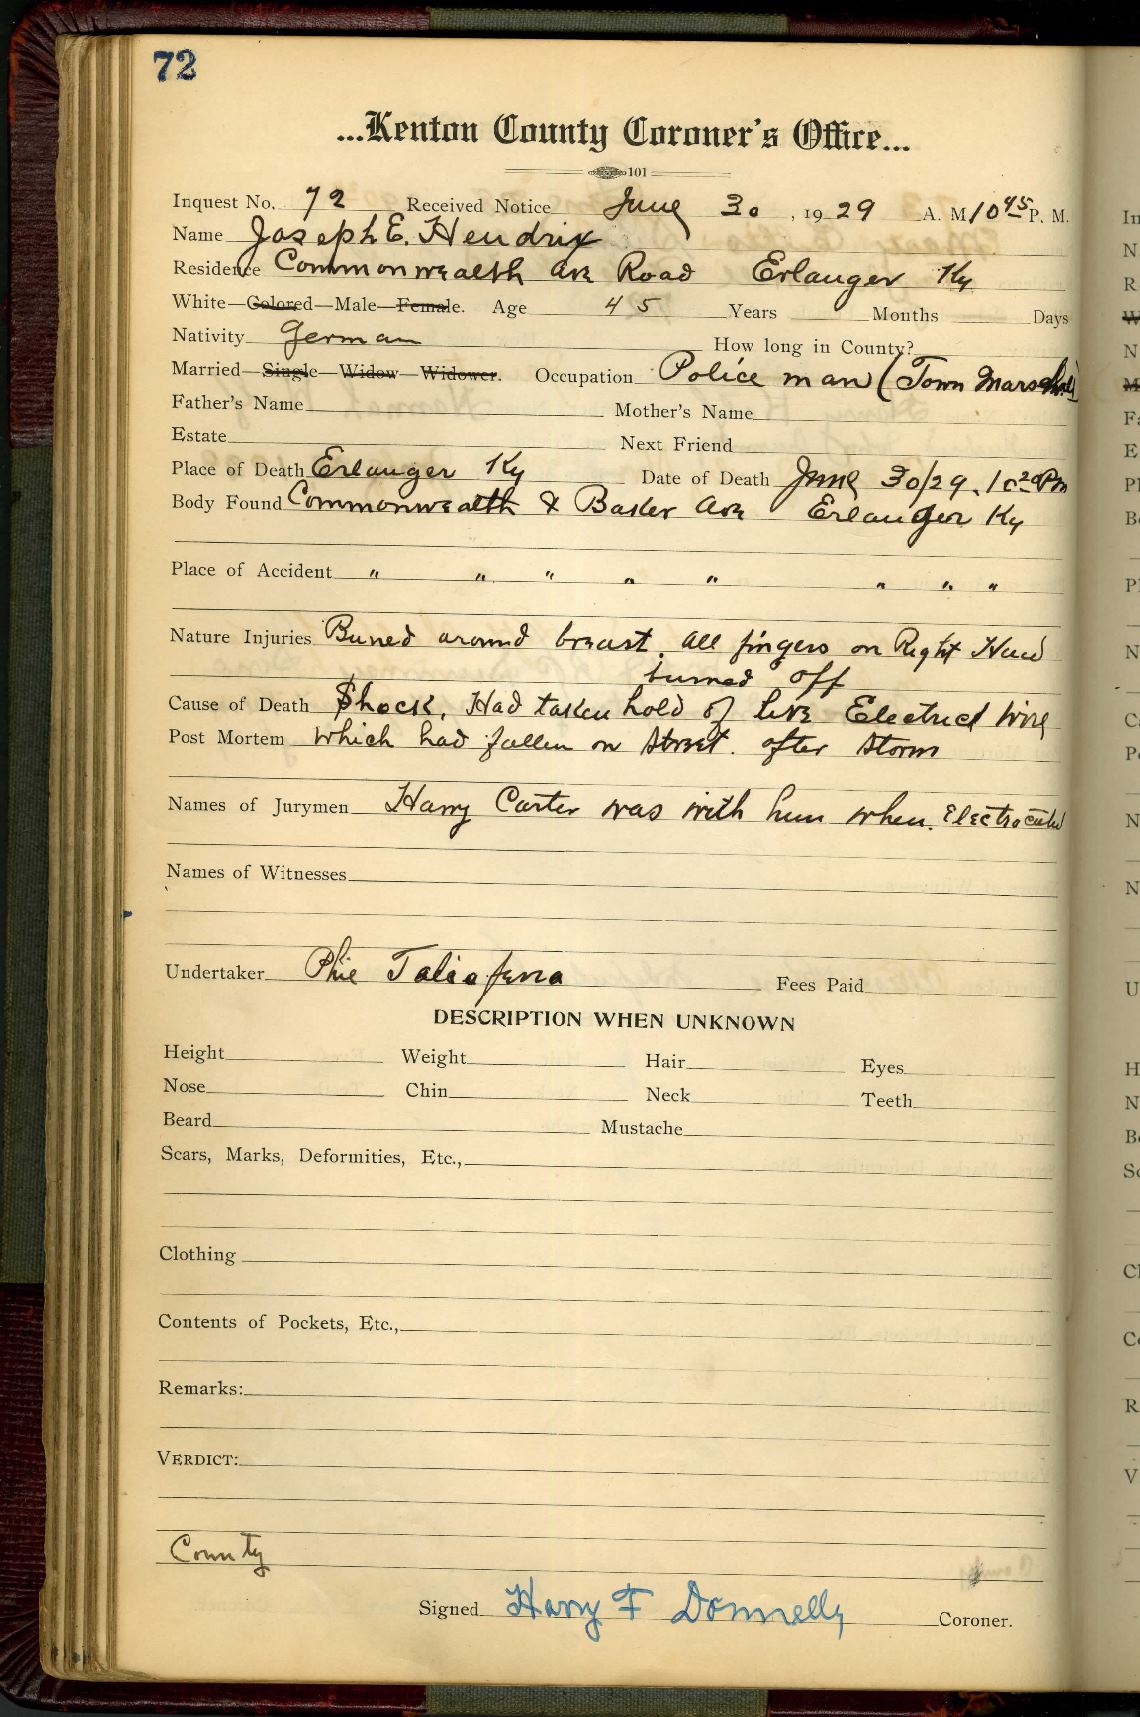 72
...Kenton County Coroner's Office...
101
Inquest No. 72 Received Notice June 30, 1929 A. M. 10 45 P. M.
Name Joseph E. Hendrix
Residence Commonwealth ave Road Erlanger Ky
White—Colored—Male—Female. Age 45 Years Months Days
Nativity German How long in County?
Married—Single—Widow—Widower. Occupation Police man (Town Marshal)
Father's Name Mother's Name
Estate Next Friend
Place of Death Erlanger Ky Date of Death June 30/29. 10 20 Pm
Body Found Commonwealth & Baker Ave Erlanger Ky
Place of Accident " " " " " " " "
Nature Injuries Buned around breast. all fingers on Right Hand
burned off
Cause of Death Shock, Had taken hold of live Electric Wire
Post Mortem which had fallen on Street. after Storm
Names of Jurymen Harry Carter was with him when. Electrocuted
Names of Witnesses
Undertaker Phil Taliaferro Fees Paid
DESCRIPTION WHEN UNKNOWN
Height Weight Hair Eyes
Nose Chin Neck Teeth
Beard Mustache
Scars, Marks, Deformities, Etc.,
Clothing
Contents of Pockets, Etc.,
Remarks:
VERDICT:
County
Signed Harry F Donnelly Coroner.